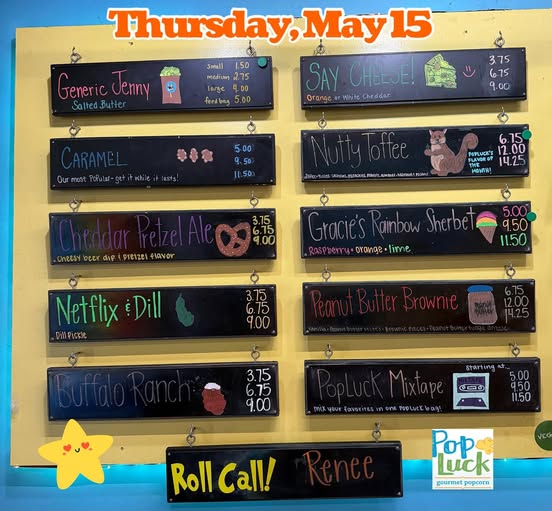 Thursday, May 15
Generic Jenny
Salted Butter
small 1.50
medium 2.75
large 4.00
feed bag 5.00
SAY CHEESE!
Orange or White Cheddar
3.75
6.75
9.00
CARAMEL
Our most Popular - get it while it lasts!
5.00
9.50
11.50
Nutty Toffee
POPLUCK'S
FLAVOR OF
THE
MONTH!
6.75
12.00
14.25
Cheddar Pretzel Ale
Cheesy beer dip & pretzel flavor
3.75
6.75
9.00
Gracie's Rainbow Sherbet
Raspberry • orange • lime
5.00
9.50
11.50
Netflix & Dill
Dill Pickle
3.75
6.75
9.00
Peanut Butter Brownie
6.75
12.00
14.25
Buffalo Ranch
3.75
6.75
9.00
PopLuck Mixtape
Mix your favorites in one PopLuck bag!
starting at...
5.00
9.50
11.50
Roll Call! Renee
Pop
Luck
gourmet popcorn